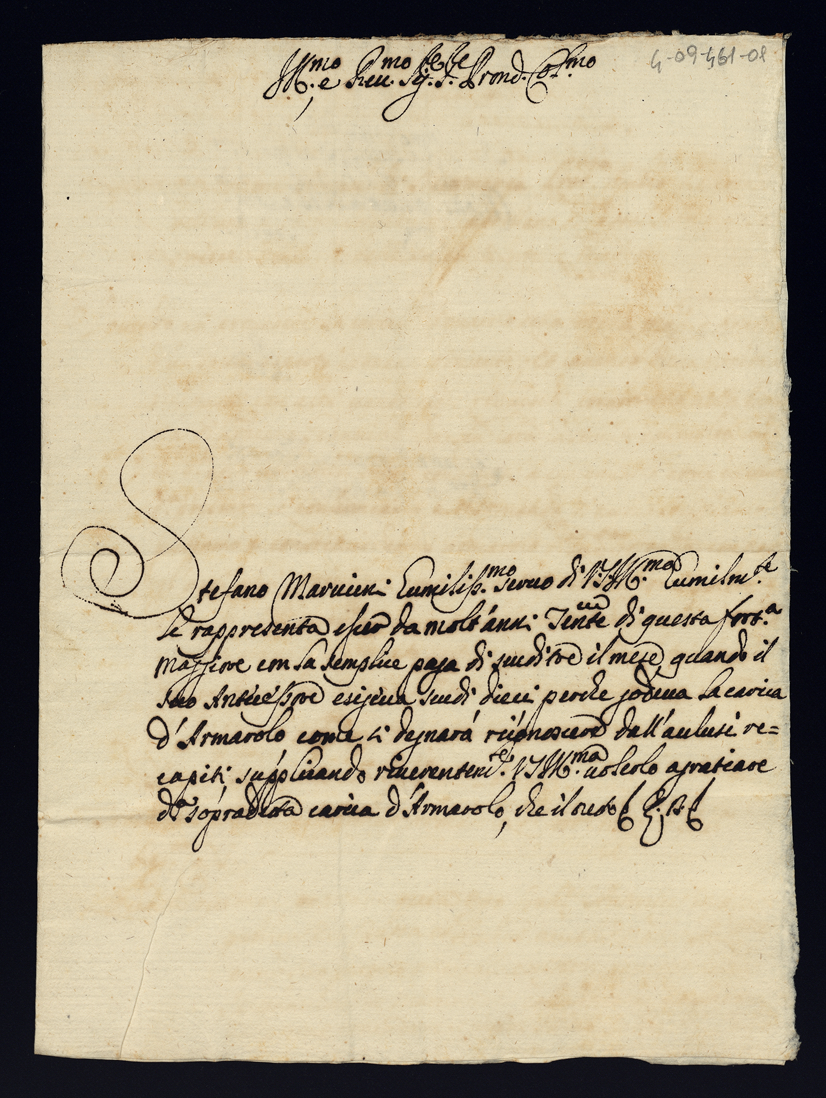 Ill.mo e Reu.mo Sig.re P.re Prond. Col.mo
4-09-461-08
Stefano Maruieni Eumiliss.mo seruo di V.S. Ill.ma Eumilm.te
le rappresenta esser da molt'anni Tente di questa fort.a
maggiore con la semplice paga di scudi tre il mese, quando il
suo Antecessore esigeua scudi dieci perche godeua la carica
d'Armarolo come si degnará riconoscere dall'aclusi re=
capiti supplicando riuerentem.te V.S. Ill.ma uolerlo agratiare
de sopradetta carica d'Armarolo, che il tutto